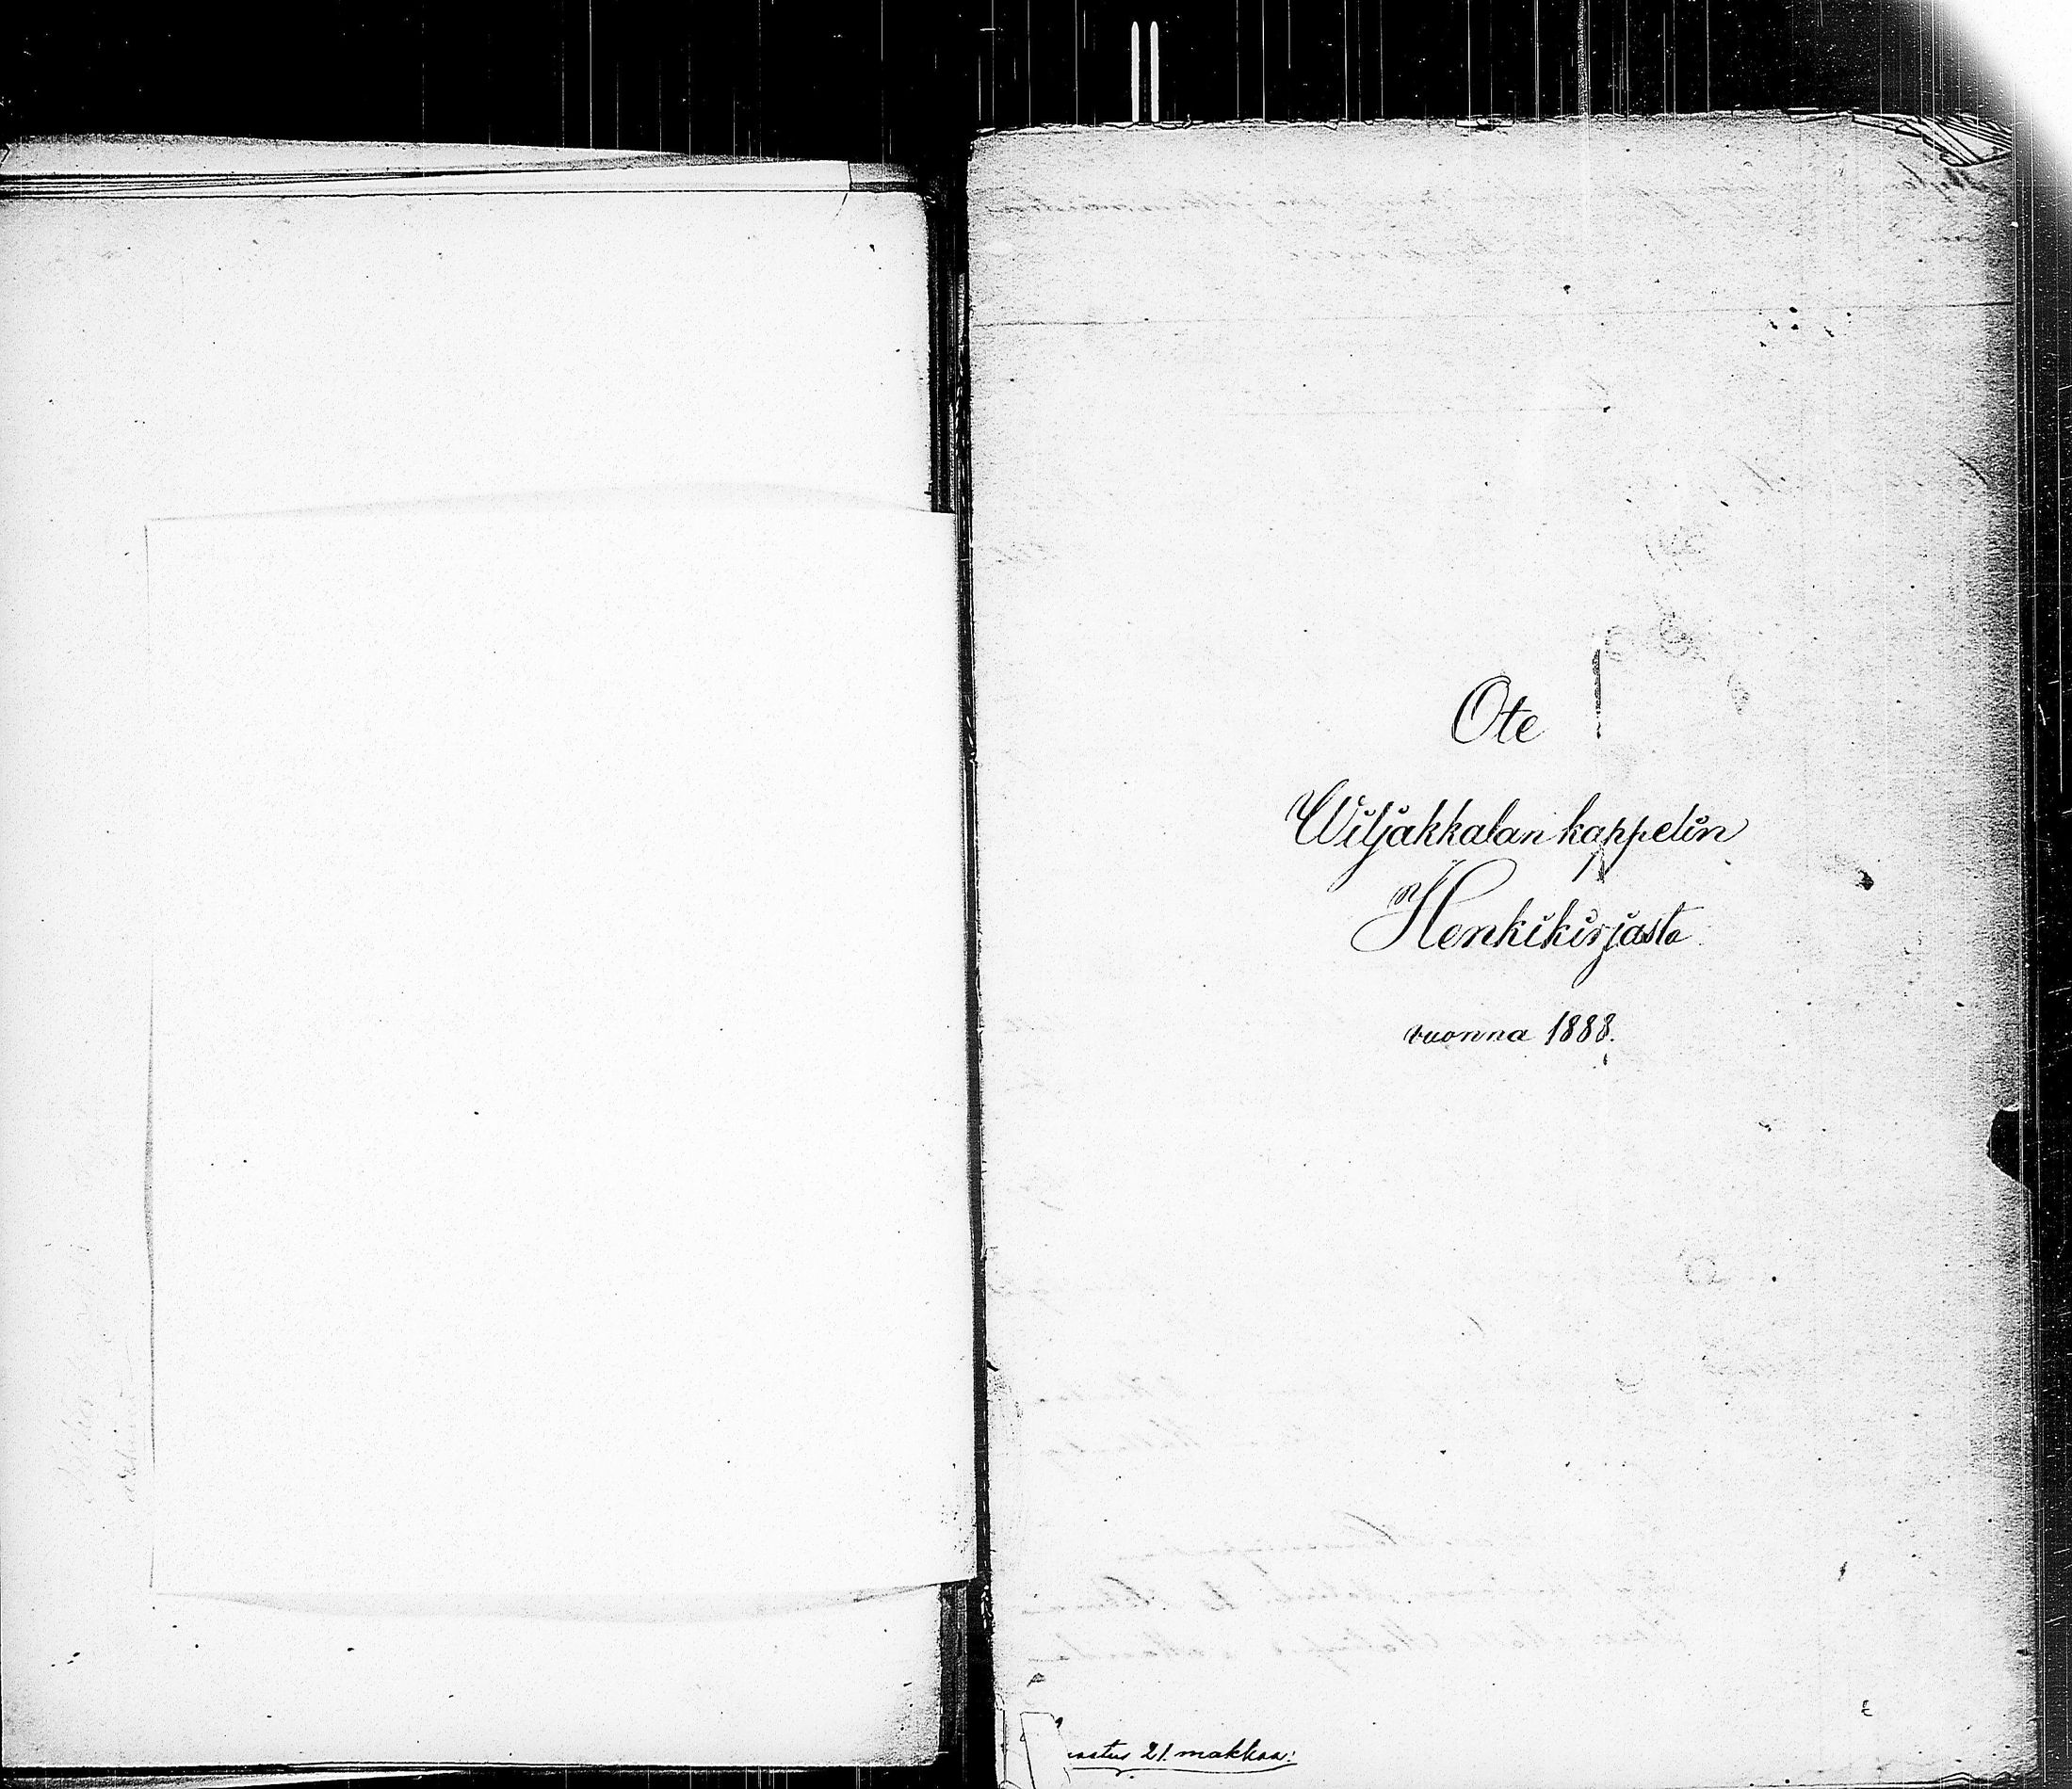 Ote
Wiljakkalan kappelin
Henkikirjasta
vuonna 1888.
21. makkaa: